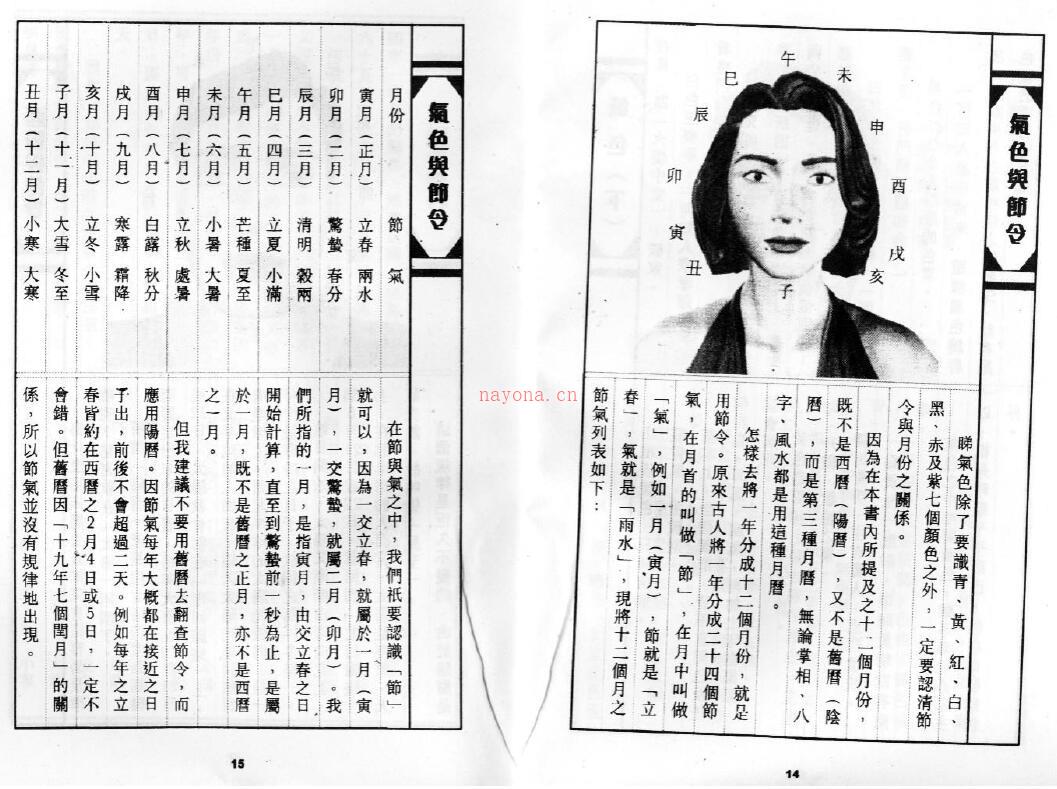 氣色與節令
午
未
申
酉
戌
亥
子
丑
寅
卯
辰
巳
睇氣色除了要識青、黃、紅、白、
黑、赤及紫七個顏色之外，一定要認清節
令與月份之關係。
因為在本書內所提及之十二個月份，
既不是西曆（陽曆），又不是舊曆（陰
曆），而是第三種月曆，無論掌相、八
字、風水都是用這種月曆。
怎樣去將一年分成十二個月份，就是
用節令。原來古人將一年分成二十四個節
氣，在月首的叫做「節」，在月中叫做
「氣」，例如一月（寅月），節就是「立
春」，氣就是「雨水」，現將十二個月之
節氣列表如下：
14
氣色與節令
月份 節 氣
寅月（正月） 立春 雨水
卯月（二月） 驚蟄 春分
辰月（三月） 清明 穀雨
巳月（四月） 立夏 小滿
午月（五月） 芒種 夏至
未月（六月） 小暑 大暑
申月（七月） 立秋 處暑
酉月（八月） 白露 秋分
戌月（九月） 寒露 霜降
亥月（十月） 立冬 小雪
子月（十一月） 大雪 冬至
丑月（十二月） 小寒 大寒
在節與氣之中，我們祇要認識「節」
就可以，因為一交立春，就屬於一月（寅
月），一交驚蟄，就屬二月（卯月）。我
們所指的一月，是指寅月，由交立春之日
開始計算，直至到驚蟄前一秒為止，是屬
於一月，既不是舊曆之正月，亦不是西曆
之一月。
但我建議不要用舊曆去翻查節令，而
應用陽曆。因節氣每年大概都在接近之日
子出，前後不會超過二天。例如每年之立
春皆約在西曆之2月4日或5日，一定不
會錯。但舊曆因「十九年七個閏月」的關
係，所以節氣並沒有規律地出現。
15
nayona.cn